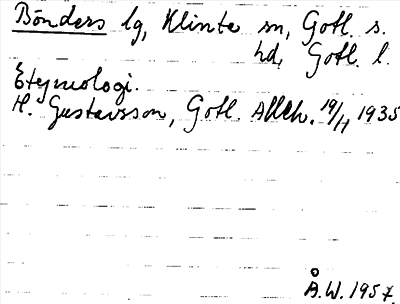 Bönders lg, Klinte sn, Gotl. s.
hd, Gotl. l.
Etymologi.
H. Gustavsson, Gotl. Alleh. 19/11 1935
Å.W. 1957.